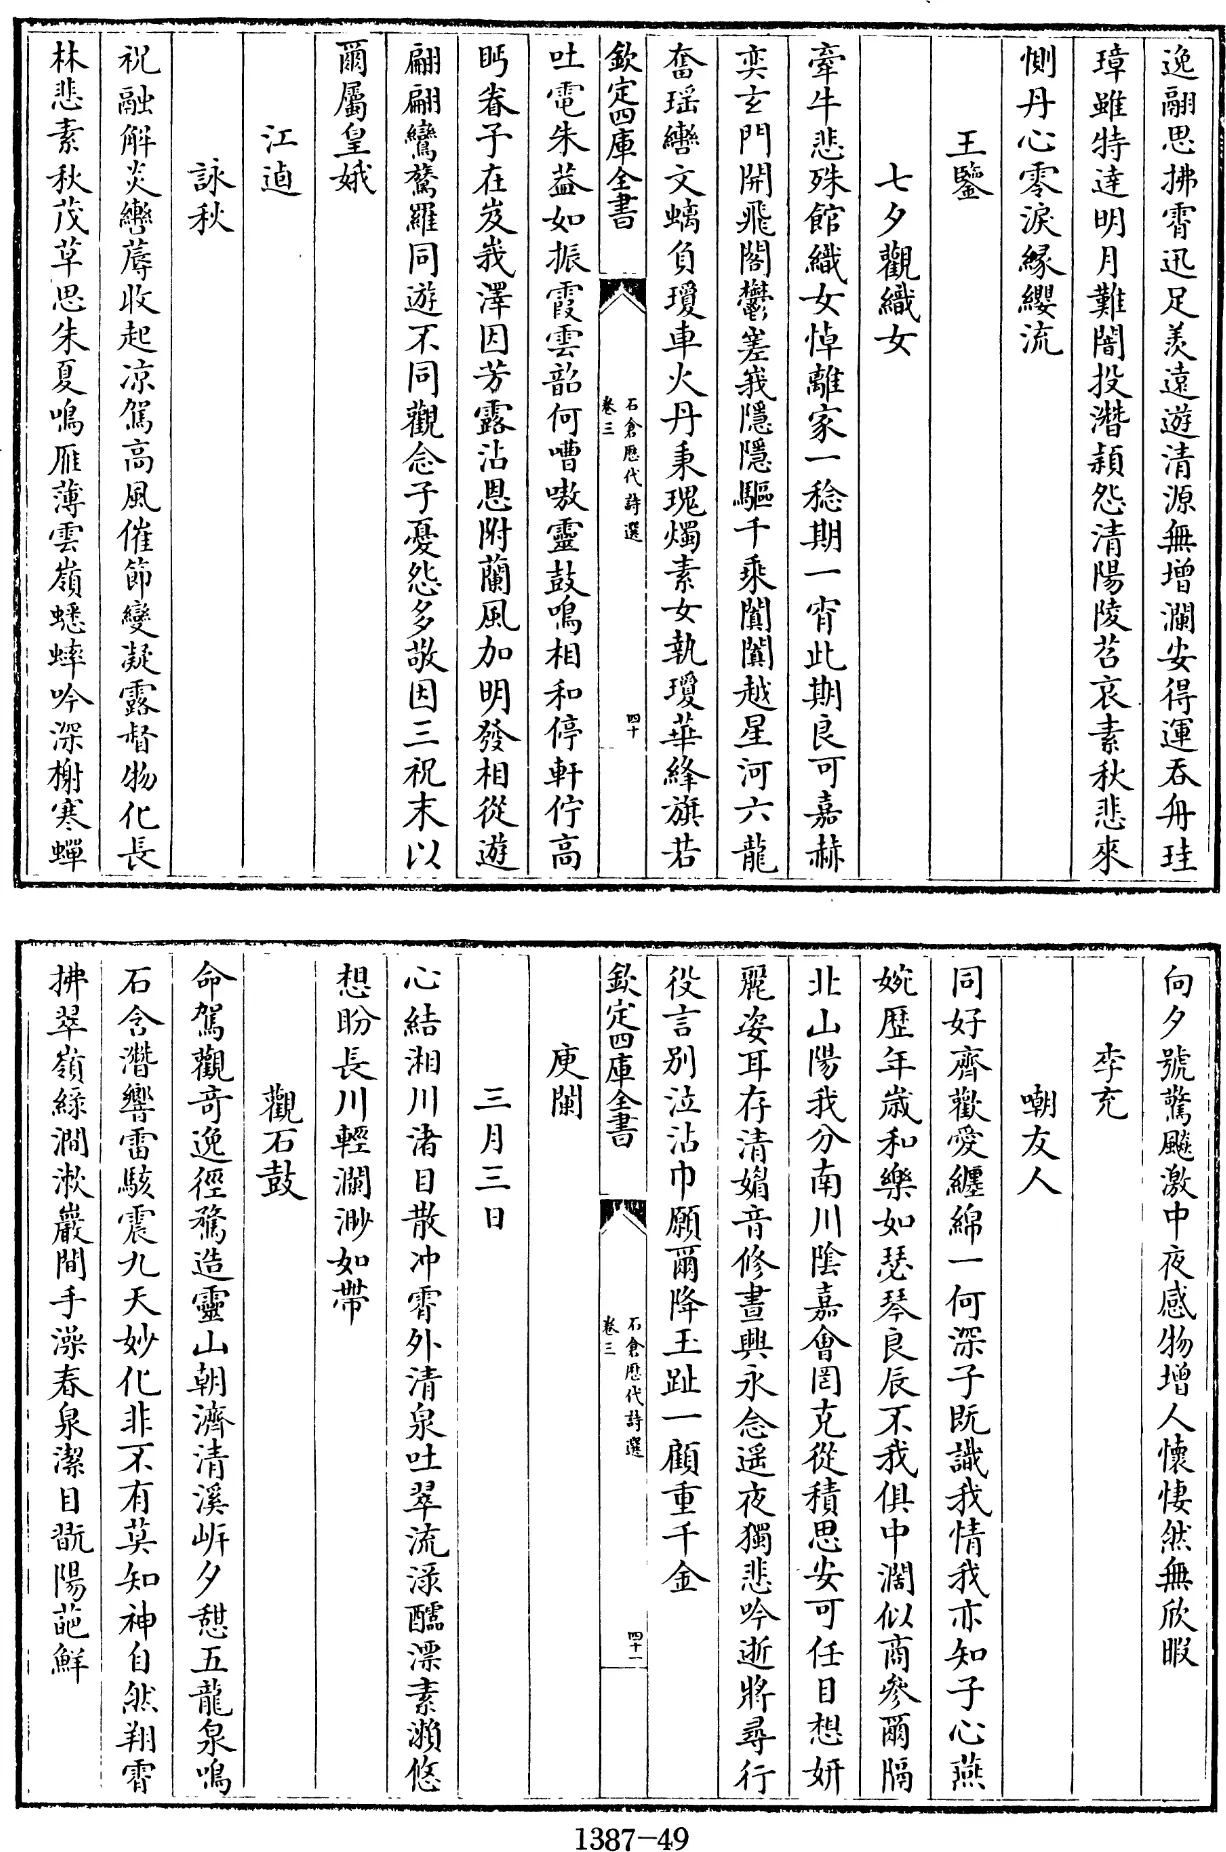 逸翮思拂霄迅足羨遠遊清源無增瀾安得運吞舟珪
璋雖特達明月難闇投潛穎怨清陽陵苕哀素秋悲來
惻丹心零淚緣纓流
王鑒
七夕觀織女
牽牛悲殊館織女悼離家一稔期一宵此期良可嘉赫
奕玄門開飛閣鬱嵳峩隱隱驅千乘闐闐越星河六龍
奮瑶轡文螭負瓊車火丹秉瑰燭素女執瓊華絳旗若
欽定四庫全書
石倉歷代詩選
卷三
四十
吐電朱葢如振霞雲韶何嘈嗷靈鼓鳴相和停軒佇高
眄眷子在岌峩澤因芳露沾恩附蘭風加明發相從遊
翩翩鸞鷟羅同遊不同觀念子憂怨多敬因三祝末以
爾屬皇娥
江逌
詠秋
祝融解炎轡蓐收起凉駕高風催節變凝露督物化長
林悲素秋茂草思朱夏鳴雁薄雲嶺蟋蟀吟深榭寒蟬
向夕號驚飈激中夜感物增人懷悽然無欣暇
李充
嘲友人
同好齊歡愛纏綿一何深子既識我情我亦知子心燕
婉歷年歲和樂如瑟琴良辰不我俱中濶似商參爾隔
北山陽我分南川陰嘉會罔克從積思安可任目想妍
麗姿耳存清媚音修晝興永念遥夜獨悲吟逝將尋行
役言別泣沾巾願爾降玉趾一顧重千金
欽定四庫全書
石倉歷代詩選
卷三
四十一
庾闡
三月三日
心結湘川渚目散冲霄外清泉吐翠流淥醽漂素瀨悠
想盼長川輕瀾渺如帶
觀石鼓
命駕觀奇逸徑鶩造靈山朝濟清溪岍夕憇五龍泉鳴
石含潛響雷駭震九天妙化非不有莫知神自然翔霄
拂翠嶺緑澗漱巖間手澡春泉潔目翫陽葩鮮
1387-49